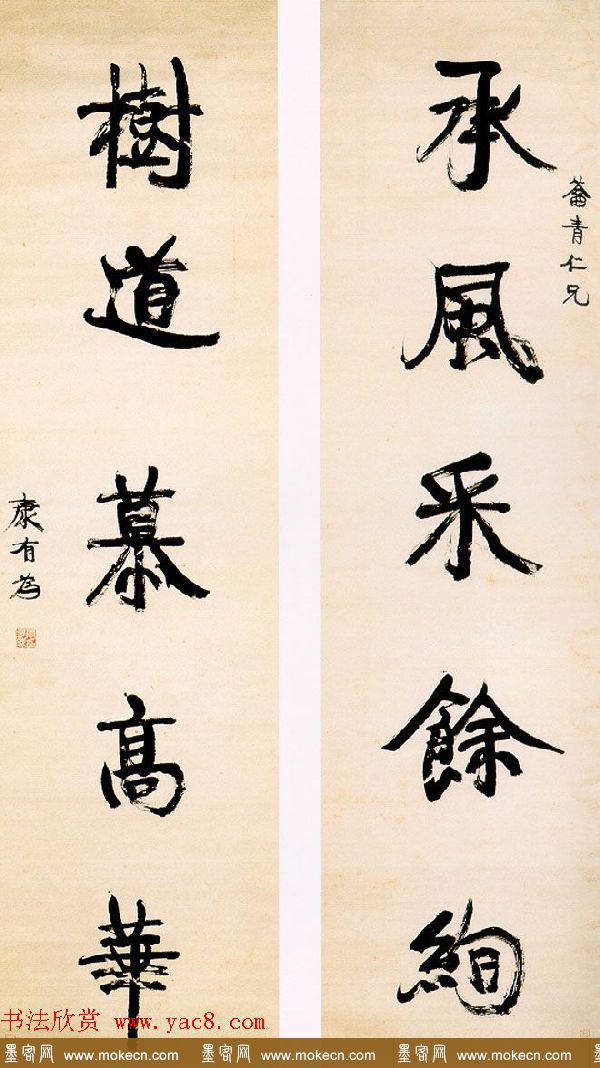 承風采餘絢
青仁兄
樹道慕高華
康有為
书法欣赏 www.yac8.com
墨客网 www.mokecn.com 墨客网 www.mokecn.com 墨客网 www.mokecn.com